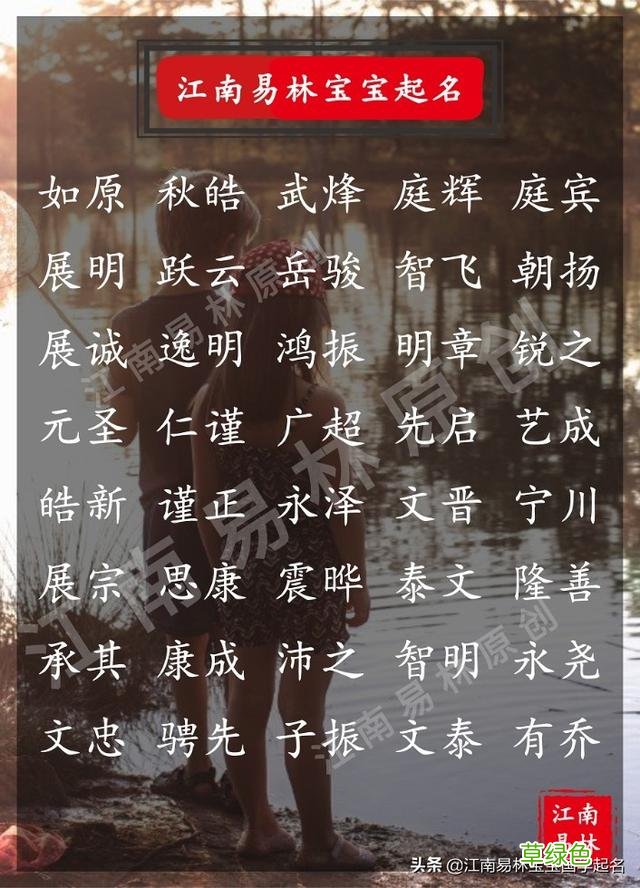 江南易林宝宝起名
如原 秋皓 武烽 庭辉 庭宾
展明 跃云 岳骏 智飞 朝扬
展诚 逸明 鸿振 明章 锐之
元圣 仁谨 广超 先启 艺成
皓新 谨正 永泽 文晋 宁川
展宗 思康 震晔 泰文 隆善
承其 康成 沛之 智明 永尧
文忠 骋先 子振 文泰 有乔
江南易林原创
江南易林原创
江南易林原创
江南
易林
草绿色
头条 @江南易林宝宝国学起名